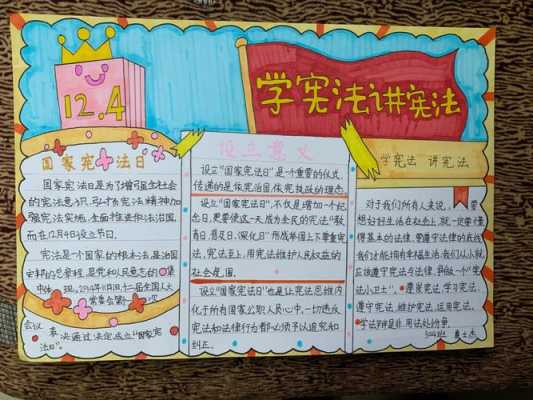 学宪法讲宪法
12.4
国家宪法日
国家宪法日是为了增强全社会
的宪法意识,弘扬宪法精神,加
强宪法实施,全面推进依法治国,
而在12月4日设立节日。
宪法是一个国家的根本法,是治国
安邦的总章程,是党和人民意志的集
中体现,2014年11月1日十二届全国人大
常委会第十次
会议表决通过决定成立"国家宪
法日"。
设立意义
设立"国家宪法日"是一个重要的仪式,
传递的是依宪治国、依宪执政的理念
设立"国家宪法日",不仅是增加一个纪
念日,更要使这一天成为全民的宪法"教
育日、普及日、深化日"形成举国上下尊重宪
法,宪法至上,用宪法维护人民权益的
社会氛围。
设立"国家宪法日"也是让宪法思维内
化于所有国家公职人员心中,一切违反
宪法和法律行为都必须予以追究和
纠正。
学宪法 讲宪法
对于我们所有人来说,要
想好好生活在社会上,就一定要懂
得基本的法律,要遵守法律的底线
我们才能拥有幸福生活,我们从小就
应该遵守宪法与法律,争做一个"学
法小卫士"。遵崇宪法,学习宪法,
遵守宪法,维护宪法,运用宪法。
学法辨是非,用法处纷争。